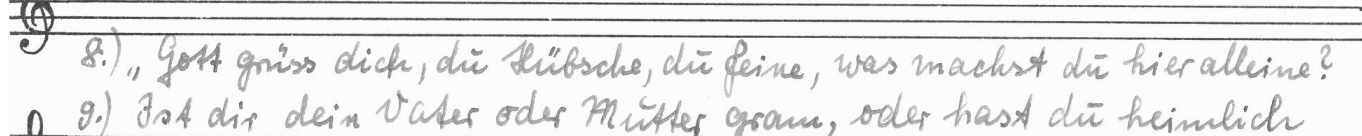 8.) „Gott grüss dich, du Hübsche, du feine, was machst du hier alleine?
9.) Ist dir dein Vater oder Mutter gram, oder hast du heimlich